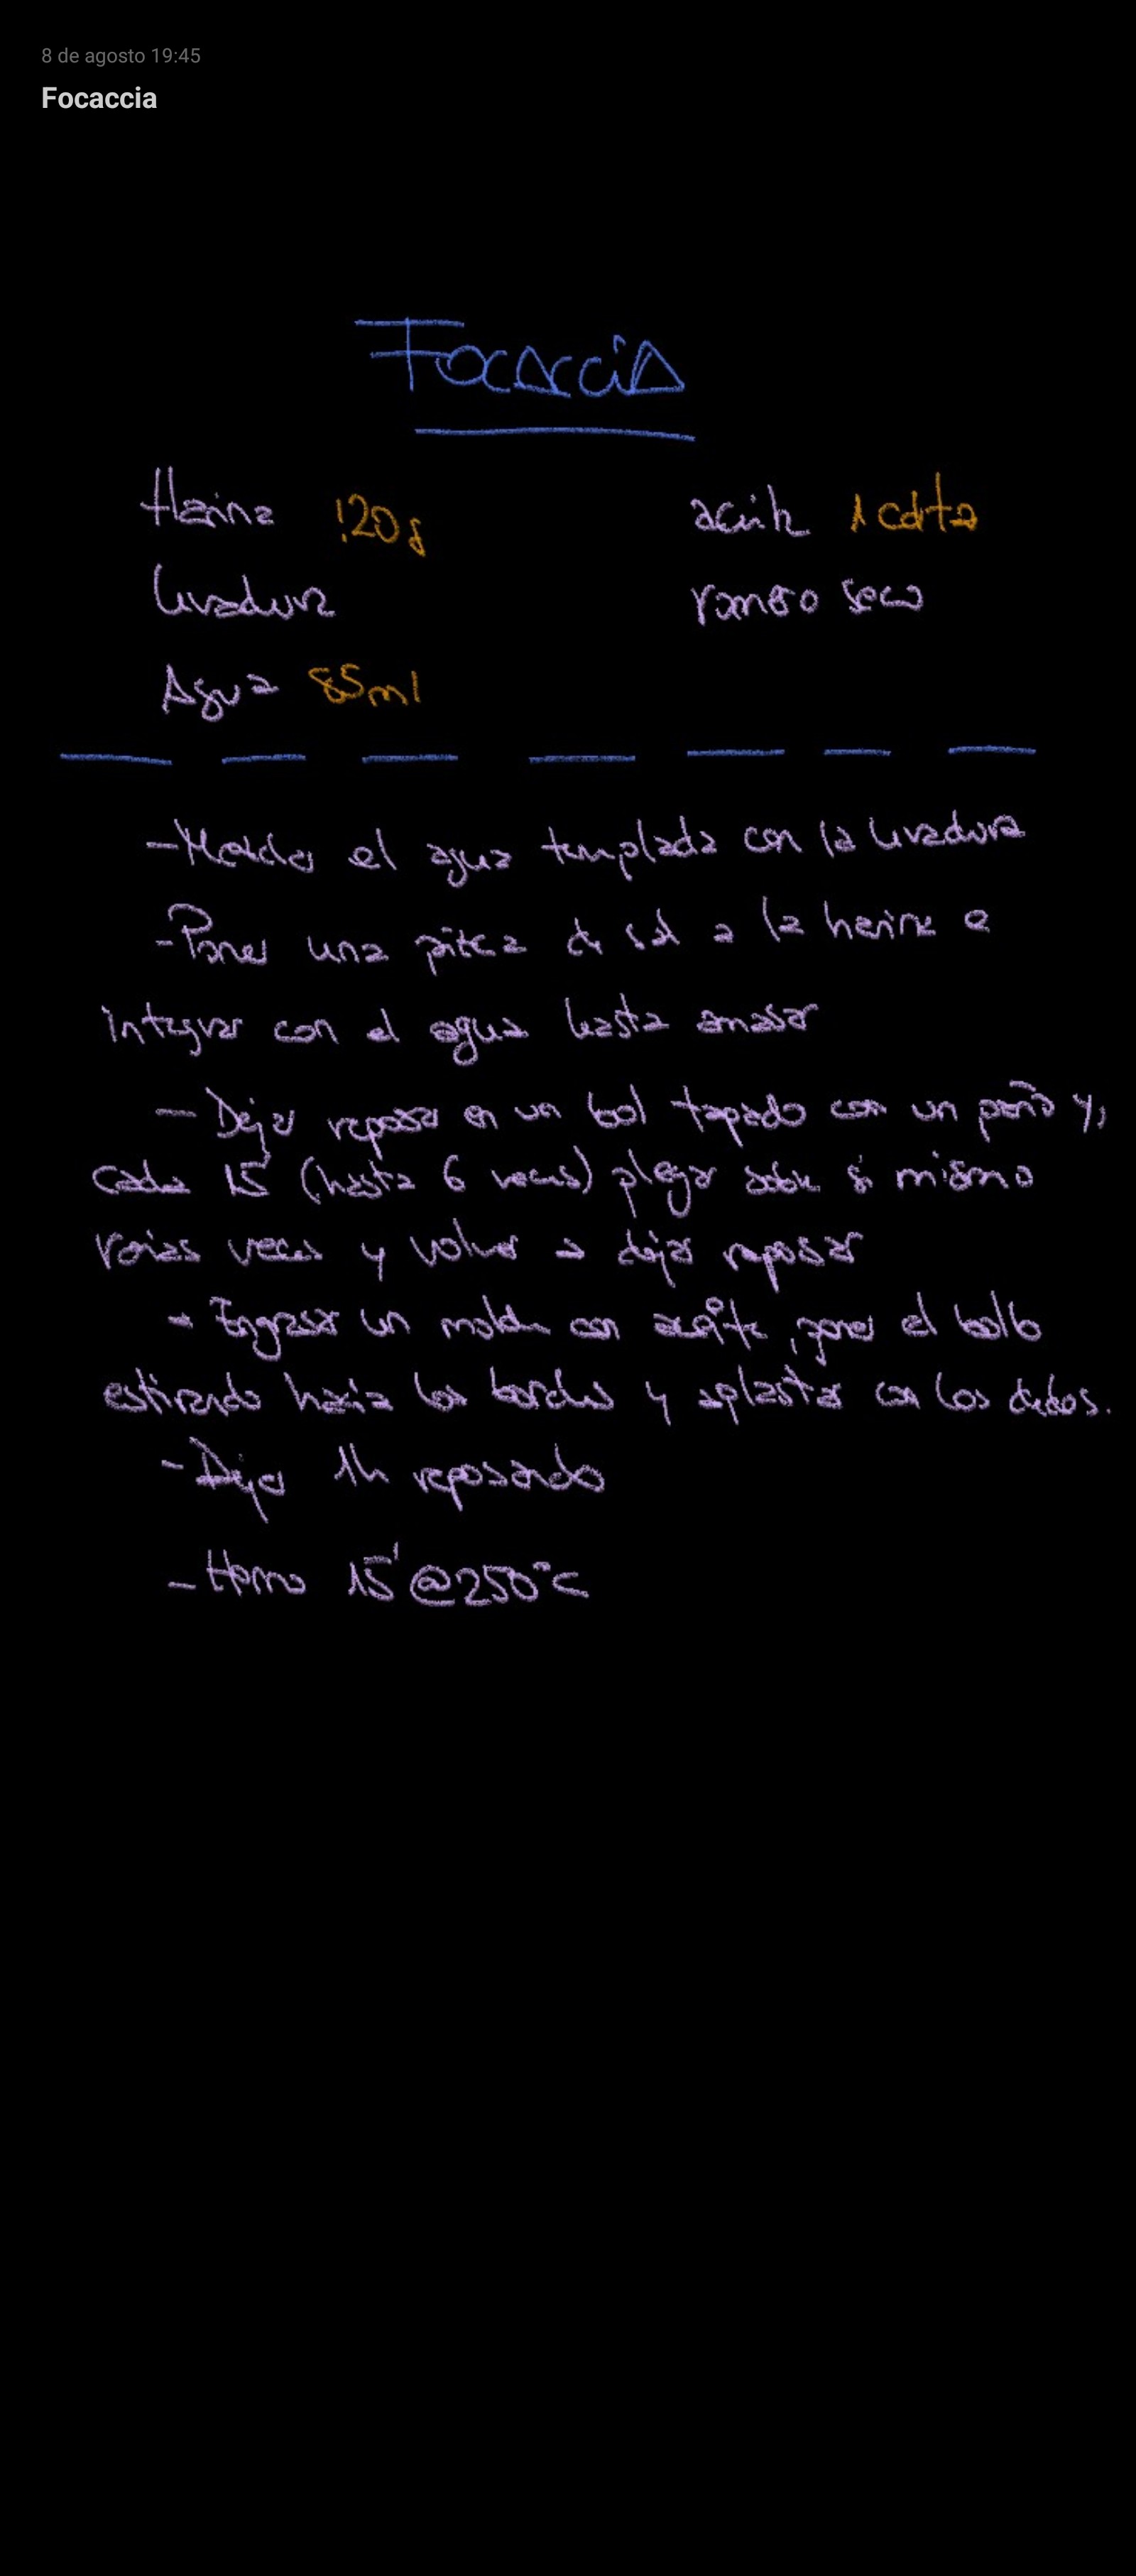 8 de agosto 19:45
Focaccia
Focaccia
Harina 120g aceite 1 cdta
levadura romero seco
Agua 85ml
- Mezclar el agua templada con la levadura
- Poner una pizca de sal a la harina e
integrar con el agua hasta amasar
- Dejar reposar en un bol tapado con un paño y,
cada 15' (hasta 6 veces) plegar sobre si mismo
varias veces y volver a dejar reposar
- Engrasar un molde con aceite, poner el bollo
estirando hacia los bordes y aplastar con los dedos.
- Dejar 1h reposando
- Horno 15' @250°C